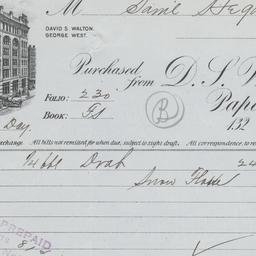 M Saml
DAVID S. WALTON.
GEORGE WEST.
Purchased from D. S. W
Pape
FOLIO: 230
132
BOOK: F8
B
Day.
xchange. All bills not remitted for when due, subject to sight draft. All correspondence, to re
Drab 24
Snow Flake
PREPAID